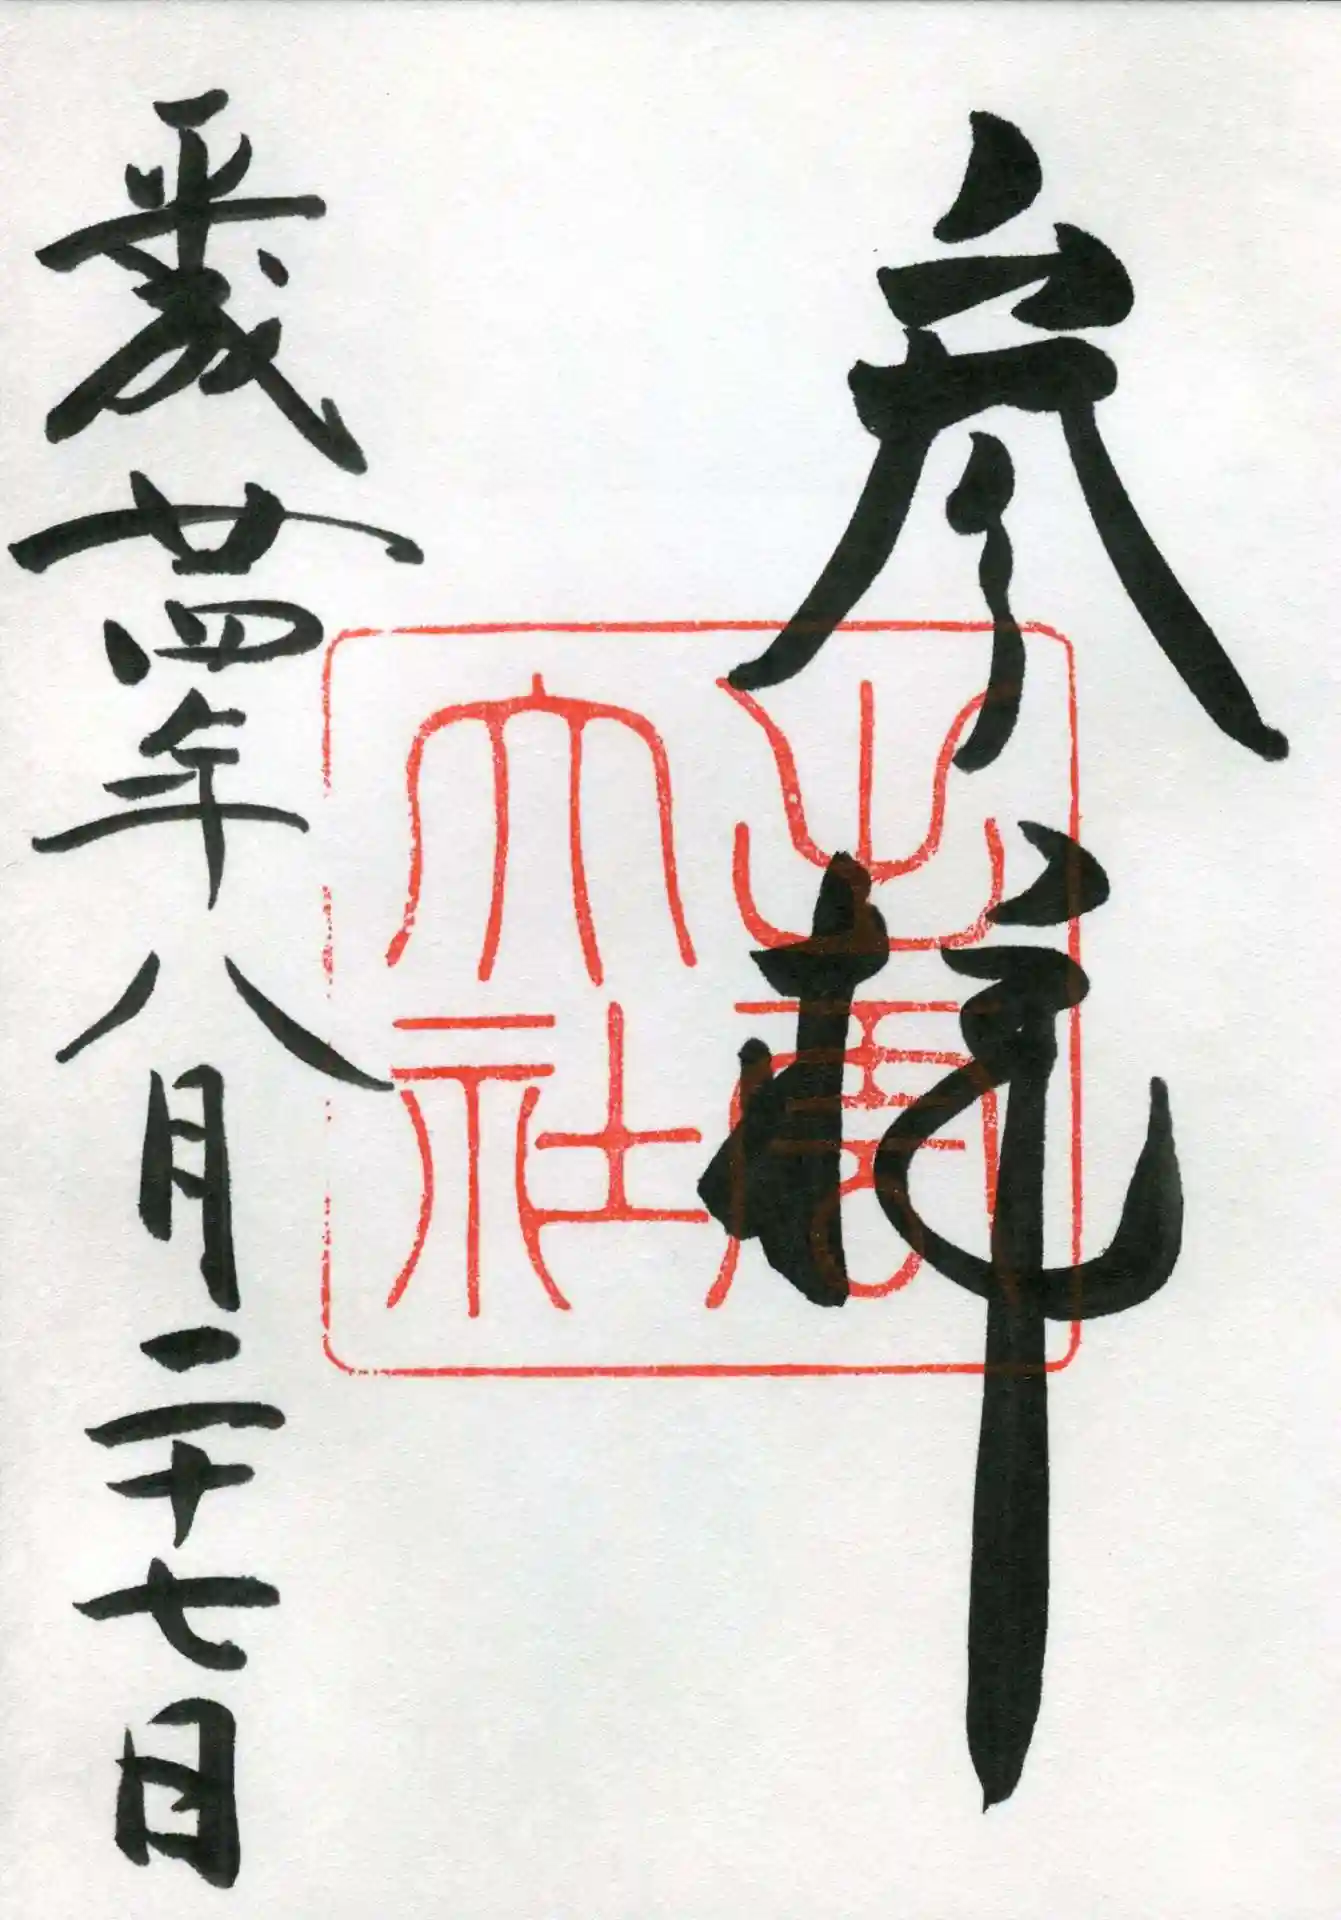 参拝
出雲大社
平成廿四年八月二十七日